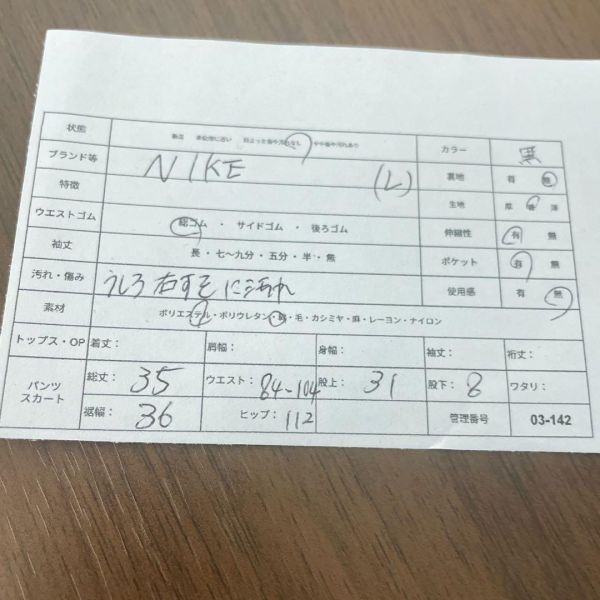 状態 新品 未使用に近い 目立った傷や汚れなし やや傷や汚れあり カラー 黒
ブランド等 NIKE (L) 裏地 有 無
特徴 生地 厚 普 薄
ウエストゴム 総ゴム ・ サイドゴム ・ 後ろゴム 伸縮性 有 無
袖丈 長・七〜九分・五分・半・無 ポケット 有 無
汚れ・傷み うしろ右すそに汚れ 使用感 有 無
素材 ポリエステル・ポリウレタン・綿・毛・カシミヤ・麻・レーヨン・ナイロン
トップス・OP 着丈: 肩幅: 身幅: 袖丈: 裄丈:
パンツ スカート 総丈: 35 ウエスト: 84-104 股上: 31 股下: 8 ワタリ:
裾幅: 36 ヒップ: 112 管理番号 03-142